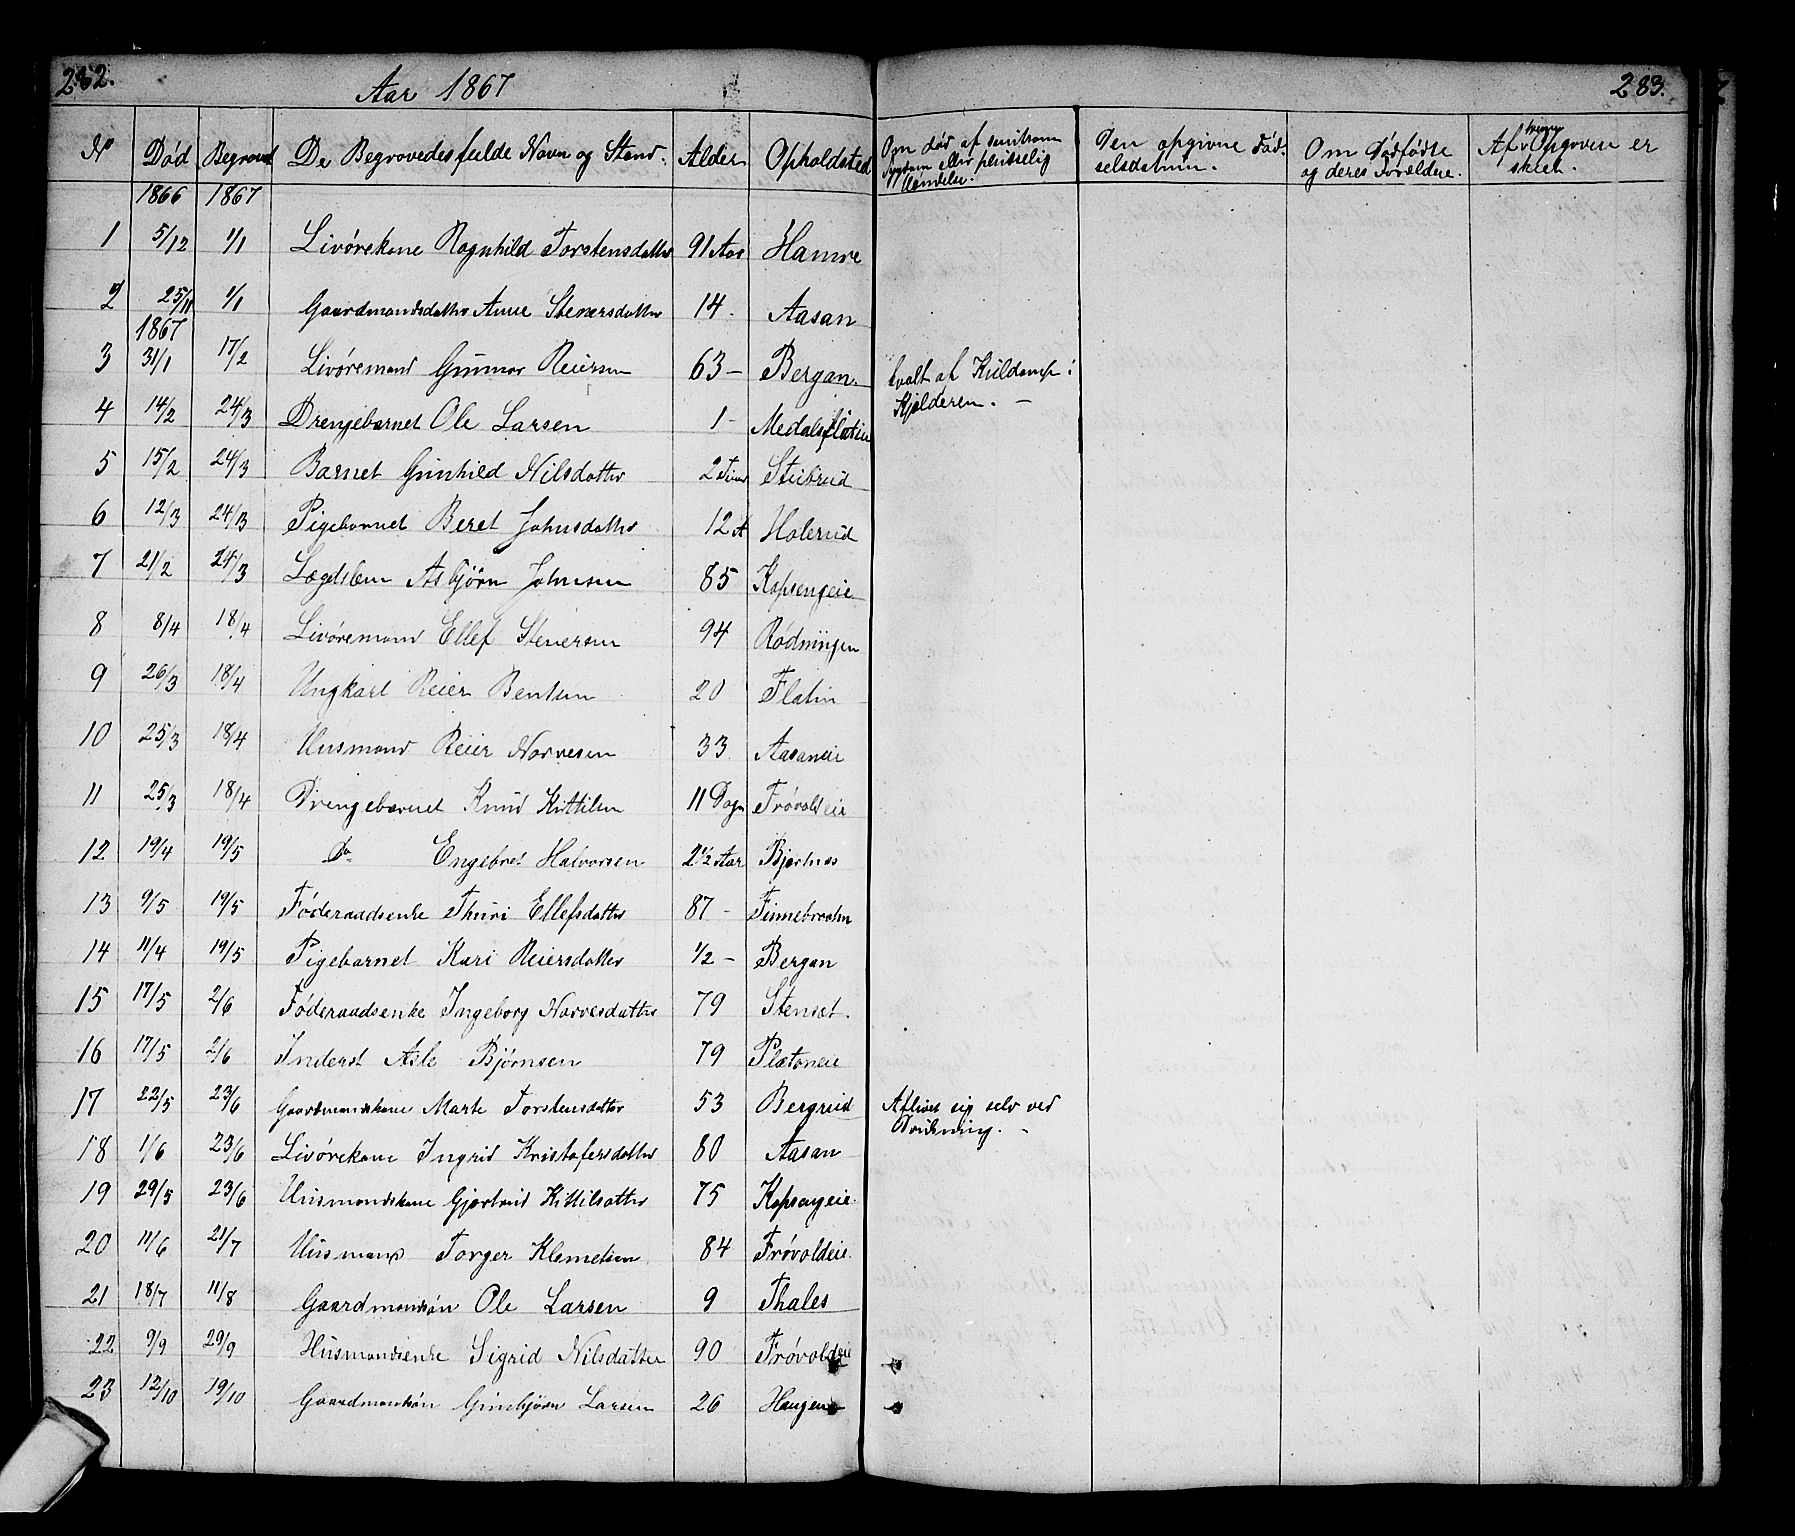 282. Aar 1867 283.
No Død Begravet De Begravedes fulde Navn og Stand. Alder Opholdsted Om død af smitsom Sygdom eller pludselig Hændelse. Den opgivne Fødselsdatum. Om Dødfødte og deres Forældre. Af hvem Opgaven er skeet.
1866 1867
1 5/12 1/1 Livørekone Ragnhild Torstensdatter 91 Aar Hamre
2 25/11 1/1 Gaardmandsdatter Anne Stenersdatter 14 - Aasan
1867
3 31/1 17/2 Livøremand Gunnar Reiersen 63 - Bergan. kvalt af Kuldamp i Kjælderen. -
4 14/2 24/3 Drengebarnet Ole Larsen 1 - Medalsflåtin
5 15/2 24/3 Barnet Gunhild Nilsdatter 2 Timer Stubrud
6 12/3 24/3 Pigebarnet Beret Johnsdatter 12 Holerud
7 21/2 24/3 Lægdslem Asbjørn Johnsen 85 Kopsengeie
8 8/4 18/4 Livøremand Ellef Stenersen 94 Rødningen
9 26/3 18/4 Ungkarl Reier Bentsen 20 Flatin
10 25/3 18/4 Husmand Reier Narvesen 33 Aasaneie
11 25/3 18/4 Drengebarnet Knud Kittilsen 11 Dage Frøvoldeie
12 19/4 19/5 do Engebret Halvorsen 2 1/2 Aar Bjertnes
13 9/5 19/5 Føderaadsenke Thuri Ellefsdatter 87 - Finnebraaten
14 11/4 19/5 Pigebarnet Kari Reiersdatter 1/2 - Bergan
15 17/5 2/6 Føderaadsenke Ingeborg Narvesdatter 79 Stenset.
16 17/5 2/6 Inderst Asle Bjørnsen 79 Plataneie
17 22/5 23/6 Gaardmandskone Marte Torstensdatter 53 Bergrud Aflivet sig selv ved Drukning. -
18 1/6 23/6 Livørekone Ingrid Kristofersdatter 80 Aasan
19 29/5 23/6 Husmandskone Gjertrud Kittilsdatter 75 Kopsengeie
20 11/6 21/7 Husmand Torger Klemetsen 84 Frøvoldeie.
21 18/7 11/8 Gaardmandsøn Ole Larsen 9 Thales
22 9/9 29/9 Husmandsenke Sigrid Nilsdatter 90 Frøvoldeie
23 12/10 19/10 Gaardmandsøn Gunbjørn Larsen 26 Haugen